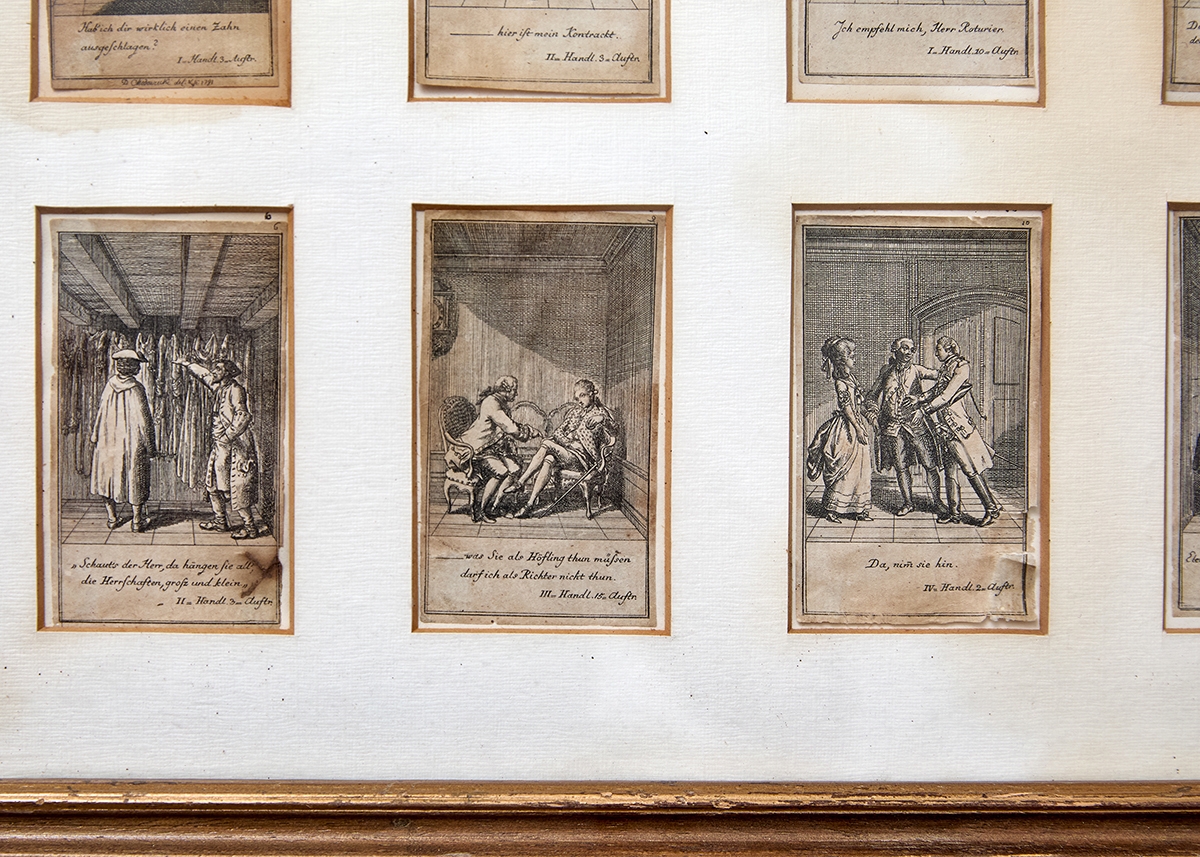 Hab' ich dir wirklich einen Zahn
ausgeschlagen?
I— Handl. 3— Auftr.
hier ist mein Kontrackt.
II— Handl. 3— Auftr.
Ich empfehl mich, Herr Roturier.
I— Handl. 10— Auftr.
6
6
„Schaut's der Herr, da hängen sie all'
die Herrschaften, groß und klein.„
II— Handl. 3— Auftr.
9
—was Sie als Höfling thun müssen
darf ich als Richter nicht thun.
III— Handl. 15— Auftr.
10
Da, nim̄ sie hin.
IV— Handl. 2— Auftr.